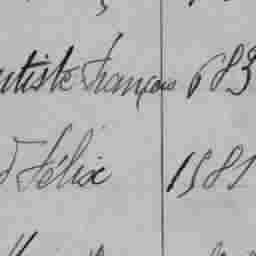 utiste François 683
d Félix 1581